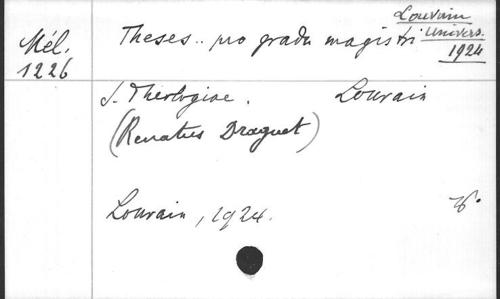 Louvain
Univers.
1924
Mél.
1226
Theses.. pro gradu magistri
S. Theologiae. Louvain
(Renatus Draguet)
Louvain, 1924.